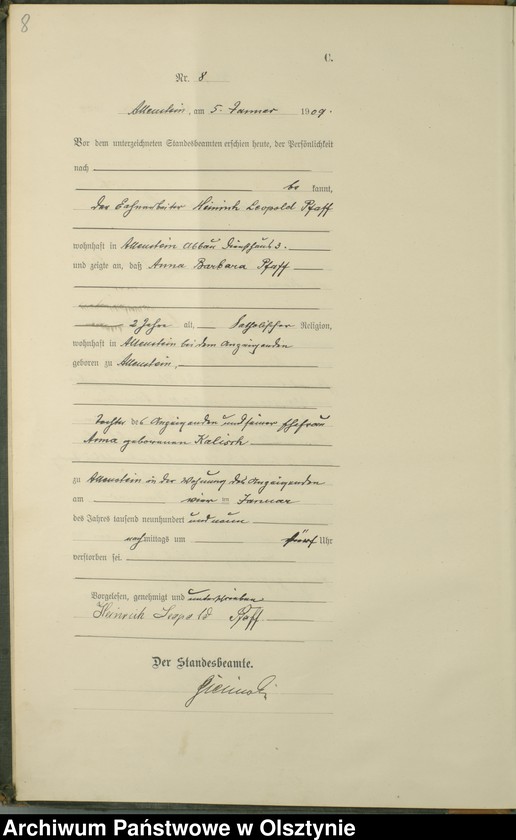 8
C.
Nr. 8
Allenstein, am 5. Januar 1909.
Vor dem unterzeichneten Standesbeamten erschien heute, der Persönlichkeit
nach
be kannt,
der Bahnarbeiter Heinrich Leopold Pfaff
wohnhaft in Allenstein Abbau 3.
und zeigte an, daß Anna Barbara Pfaff
2 Jahre alt, katholischer Religion,
wohnhaft in Allenstein bei dem Anzeigenden
geboren zu Allenstein,
Tochter des Anzeigenden und seiner Ehefrau
Anna geborenen Kalisch
zu Allenstein in der Wohnung des Anzeigenden
am vier ten Januar
des Jahres tausend neunhundert und neun
nachmittags um fünf Uhr
verstorben sei.
Vorgelesen, genehmigt und unterschrieben
Heinrich Leopold Pfaff
Der Standesbeamte.
Archiwum Państwowe w Olsztynie